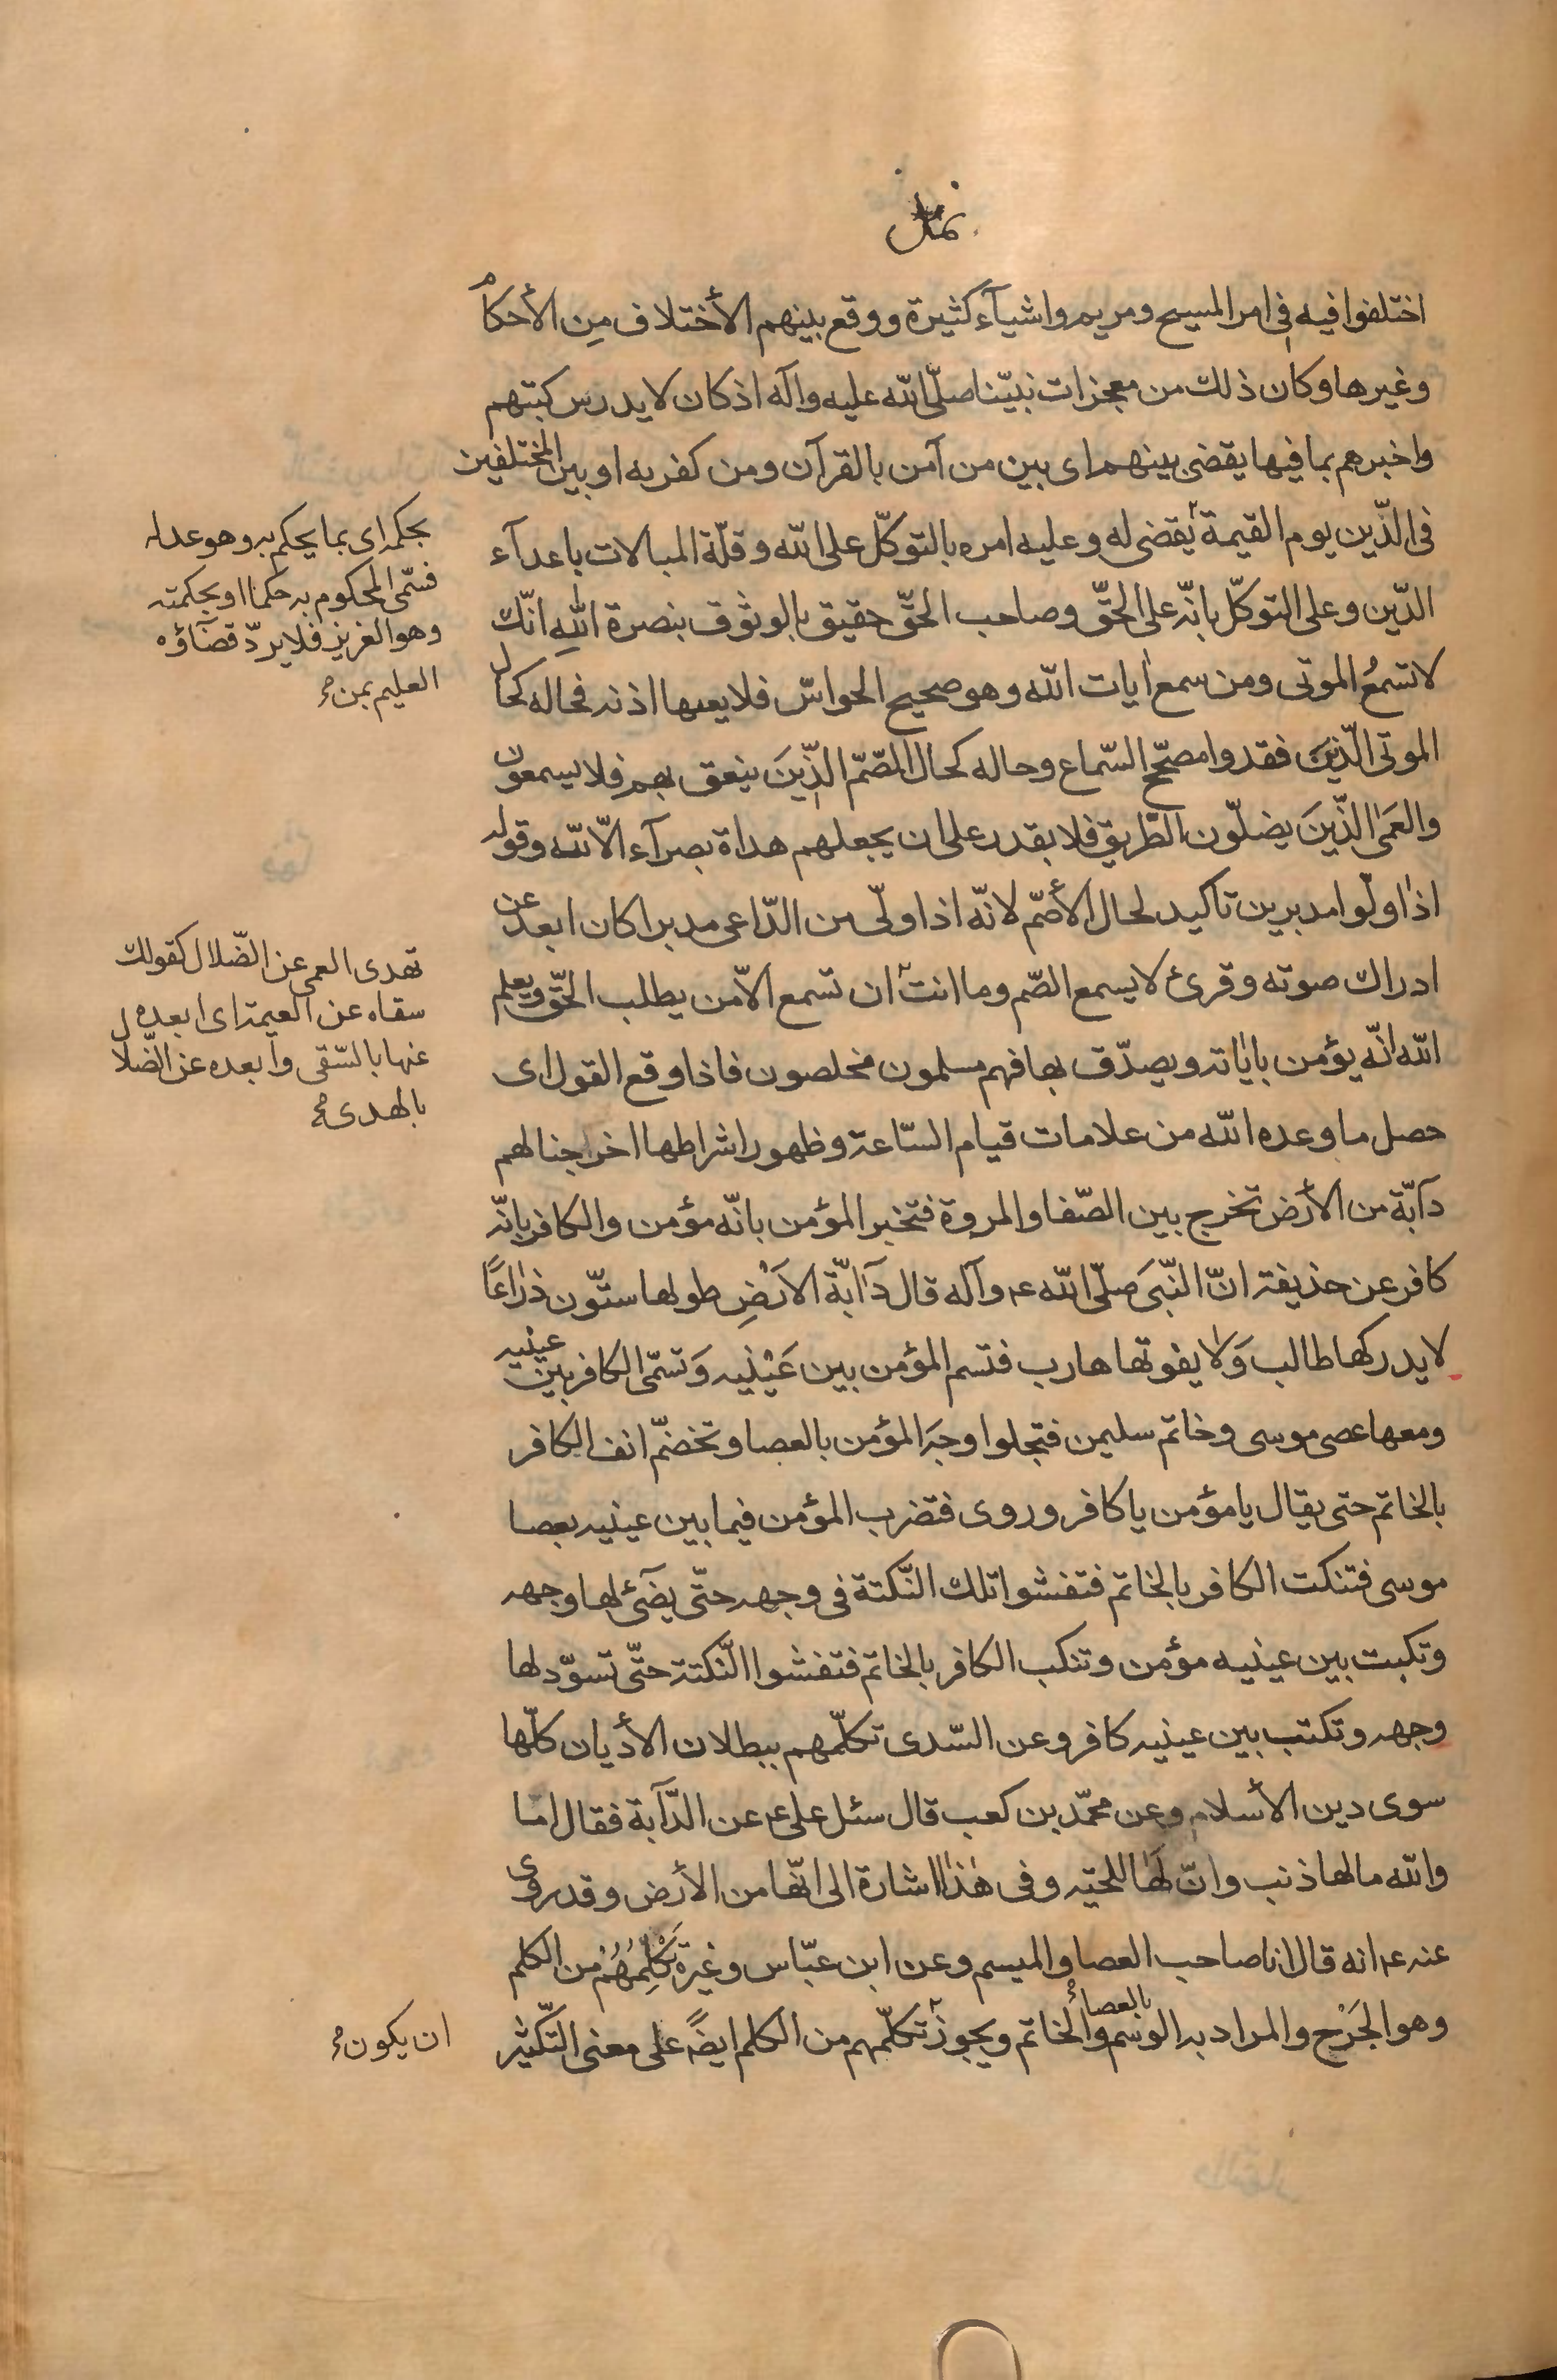 نمل
اختلفوا فيه فى امر المسيح ومريم واشيآء كثيرة ووقع بينهم الأختلاف مِن الأحكام
وغيرها وكان ذلك من معجزات نبيّنا صلّى الله عليه وآله اذ كان لا يدرس كتبهم
واخبرهم بما فيها يقضى بينهم اى بين من آمن بالقرآن ومن كفر به او بين المختلفين
فى الدّين يوم القيمة يقضى له وعليه امره بالتوكّل على الله وقلّة المبالات باعدآء
الدّين وعلى التوكّل بانّه على الحقّ وصاحب الحقّ حقيق بالوثوق بنصرة اللهِ انّك
لا تسمعُ الموتى ومن سمع اٰيات الله وهو صحيح الحواسّ فلا يعيها اذنه فحاله كحال
الموتى الّذينَ فقدوا مصحّح السّماع وحاله كحال الصّمّ الّذِينَ ينعق بهم فلا يسمعون
والعمَى الّذينَ يضلّون الطّريق فلا يقدر على ان يجعلهم هداة بصرآء الّا الله وقوله
اذا ولّوا مدبرين تأكيد لحال الأصّم لانّه اذا ولّى من الدّاعى مدبرا كان ابعد عن
ادراك صوته وقرئ لا يسمع الصّم وما انت ان تسمع الّا من يطلب الحقّ ويعلم
الله انّه يؤمن باياته ويصدّق بها فهم مسلمون مخلصون فاذا وقع القول اى
حصل ما وعده الله من علامات قيام السّاعة وظهور اشراطها اخرجنا لهم
دآبّة من الأرض تخرج بين الصّفا والمروة فتخبر المؤمن بانّه مؤمن والكافر بانّه
كافر عن حذيفة انّ النّبىَ صلّى الله ع وآله قال دآابّة الاَرْضِ طولها ستّون ذراعًا
لا يدركها طالب وَلا يفوتها هارب فتسم المؤمن بين عَيْنيه وَتسّمى الكافر بين عينيه
ومعها عصى موسى وخاتم سليمن فتجلوا وجهَ المؤمن بالعصا وتخضّم انف الكافر
بالخاتم حتى يقال يا مؤمن يا كافر وروى فتضرب المؤمن فيما بين عينيه بعصا
موسى فتنكت الكافر بالخاتم فتفشوا تلك النّكتة فى وجهه حتّى يضآئ لها وجهه
وتكبت بين عينيه مؤمن وتنكب الكافر بالخاتم فتفشوا النّكتة حتّى تسوّد لها
وجهه وتكتب بين عينيه كافر وعن السّدى تكلّمهم ببطلان الأديان كلّها
سوى دين الأسلام وعن محمّد بن كعب قال سئل على ع عن الدّآبة فقال اما
والله ما لها ذنب وانّ لَها للحية وفى هٰذا اشارة الى انّها من الأرض وقد روى
عنه ع انه قال انا صاحب العصا والميسم وعن ابن عبّاس وغيره تَكْلِمُهُمْ من الكلم
وهو الجَرْح والمراد به الوسْم بالعصاء والخاتم ويجوز تكلّمهم من الكلم ايضًا على معنى التّكثير
بحكمه اى بما يحكم به وهو عدله
فسّمى المحكوم به حكما او بحكمته
وهو العزيز فلا يردّ قضآؤه
العليم بمن
تهدى العمى عن الضّلال كقولك
سقاه عن العيمة اى ابعده
عنها بالسّقى وابعده عن الضّلال
بالهدى
ان يكون